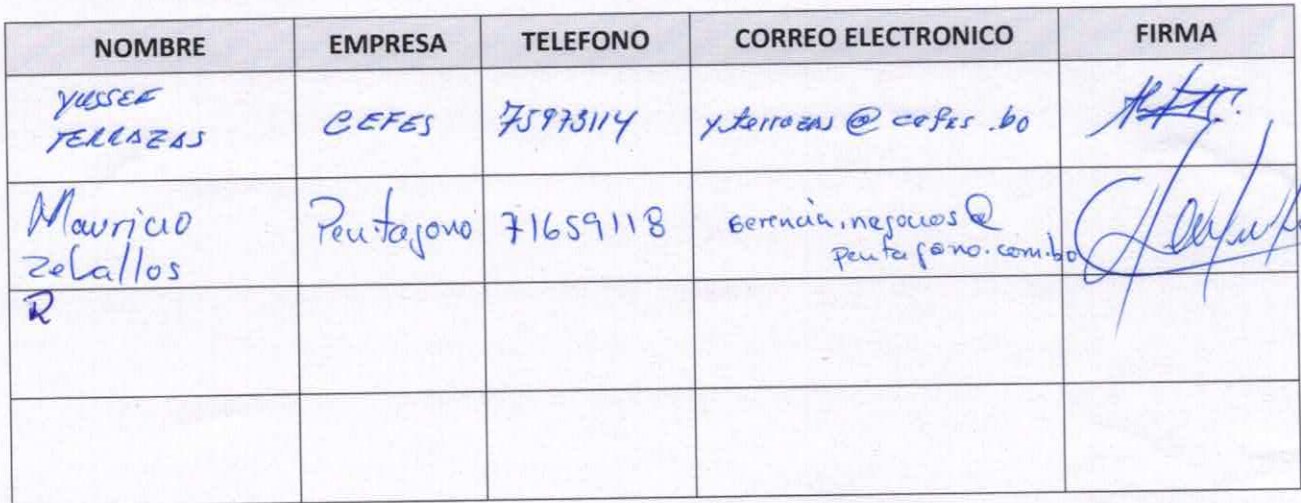 NOMBRE EMPRESA TELEFONO CORREO ELECTRONICO FIRMA
YUSSEF
TERRAZAS CEFES 75973114 yterrazas@cefes.bo
Mauricio Pentagono 71659118 gerencia.negocios@
Zeballos pentagono.com.bo
R